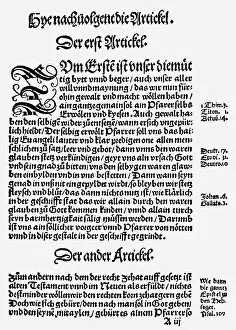 Hye nachuolgendie Artickel.
Der erst Artickel.
ZUm Erst ist vnser diemüt
tig bytt vnnd beger / auch vnser aller
will vnnd maynung / das wir nun für
ohin gewalt vnd macht wöllen haben /
ain gantze gemain sol ain Pfarer selbs
Erwölen vnd kyesen. Auch gewalt ha
ben den selbigē wider zů entsetzen / wann er sych vngepür
lich hieldt / Der selbig erwölt Pfarrer soll vns das hai
lig Euangeli lautter vnd klar predigen one allen mensch
lichen zůsatz / leer vnd gebot / dann vns den waren
glauben stetz verkündigen / geyt vns ain vrsach Gott
vnd sein gnad zů bitten / vns den selbygen waren glau
ben einbylden vnd in vns bestetten / Dann wann seyn
genad in vnß nit eingepyldet wirdt / so bleyben wir stetz
fleysch vnd blůt / das dann nichts nutz ist / wie klärlich
in der geschrifft stat das wir allain durch den waren
glauben zů Got kommen kinden / vnd allain durch
seyn barmhertzigkait sälig müssen werden / Darumb ist
vns ain söllicher vorgeer vnd Pfarrer von nötten vnd
in diser gestalt in der geschrifft gegrindt.
Der ander Artickel.
zům andern nach dem der recht zehat auff gesetzt ist
im alten Testament vnd im Neuen als erfüldt / nichts
destminder wöllen wir den rechten korn zehat gern gebē
Doch wie sich gebürt / dem nach man sol in Got geben
vnd den seynē mitaylen / gebürt es ainem Pfarrer so
A iij
1. Thim. 3.
Titon. 1.
Actuū. 14.
Deutr. 17.
Exodi. 31.
Deutro. 10
Johan. 6
Galata. 2.